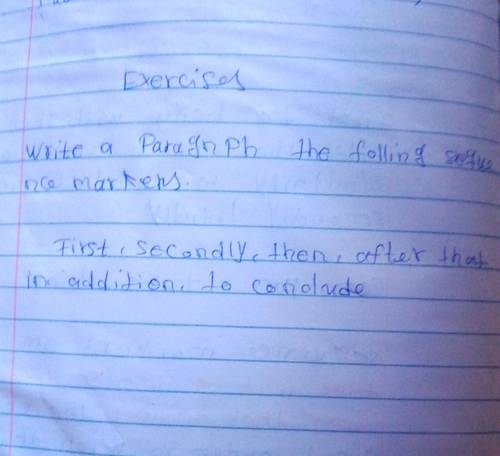 Exercises
write a Paragnph the folling sequ
nce markers.
First, secondly, then, after that
in addition, to conclude